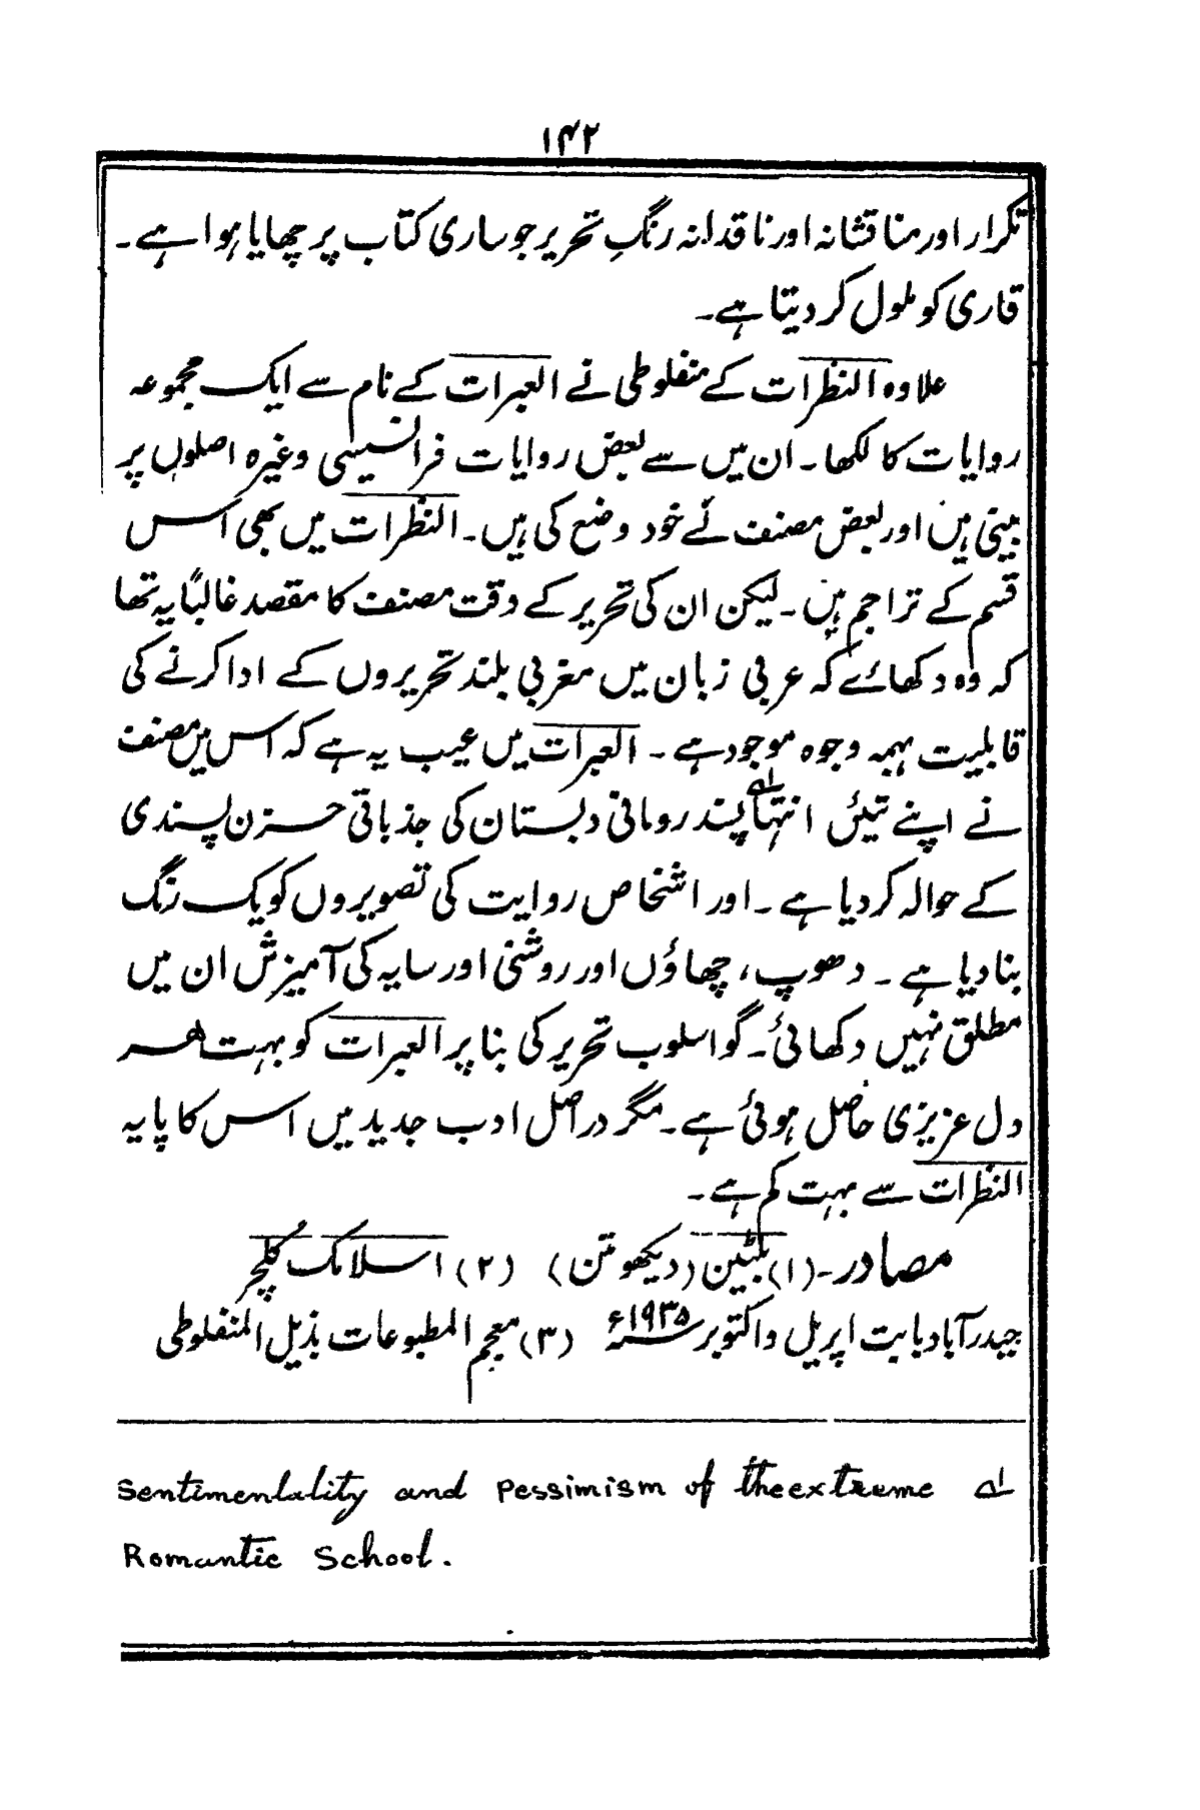 ۱۴۲
تکرار اور مناقشانہ اور ناقدانہ رنگِ تحریر جو ساری کتاب پر چھایا ہوا ہے۔
قاری کو ملول کر دیتا ہے۔
علاوہ النظرات کے منفلوطی نے العبرات کے نام سے ایک مجموعہ
روایات کا لکھا۔ ان میں سے بعض روایات فرانسیسی وغیرہ اصلوں پر
مبنی ہیں اور بعض مصنف نے خود وضع کی ہیں۔ النظرات میں بھی اس
قسم کے تراجم ہیں۔ لیکن ان کی تحریر کے وقت مصنف کا مقصد غالباً یہ تھا
کہ وہ دکھائے کہ عربی زبان میں مغربی بلند تحریروں کے ادا کرنے کی
قابلیت بہمہ وجوہ موجود ہے۔ العبرات میں عیب یہ ہے کہ اس میں مصنف
نے اپنے تیئں انتہا پسند رومانی دبستان کی جذباتی حزن پسندی لے
کے حوالہ کر دیا ہے۔ اور اشخاص روایت کی تصویروں کو یک رنگ
بنا دیا ہے۔ دھوپ، چھاؤں اور روشنی اور سایہ کی آمیزش ان میں
مطلق نہیں دکھائی۔ گو اسلوب تحریر کی بنا پر العبرات کو بہت ہر
دل عزیزی حاصل ہوئی ہے۔ مگر دراصل ادب جدید میں اس کا پایہ
النظرات سے بہت کم ہے۔
مصادر۔ (۱) بلٹین (دیکھو متن) (۲) اسلامک کلچر
حیدرآباد بابت اپریل و اکتوبر سنہ ۱۹۳۵ء (۳) معجم المطبوعات بذیل المنفلوطی
لے Sentimentality and Pessimism of the extreme
Romantic School.